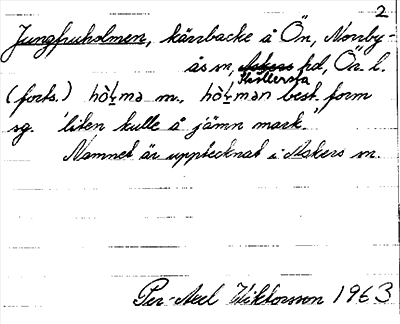 2
Jungfruholmen, kärrbacke å Ön, Norrby-
ås m, Askers hd, Ör. l.
(forts.) hòlmə m., hòlmən best. form
sg. 'liten kulle å jämn mark.'
Namnet är upptecknat i Askers sn.
Per-Axel Wiktorsson 1963